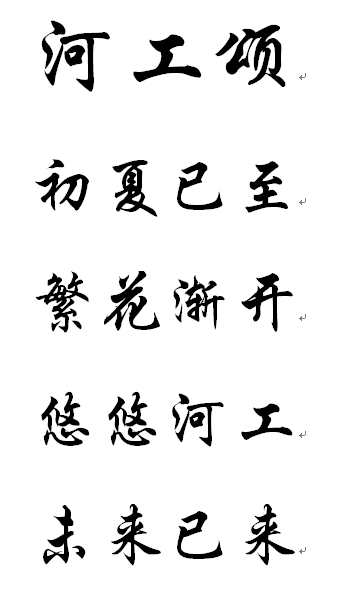 河工颂
初夏已至
繁花渐开
悠悠河工
未来已来